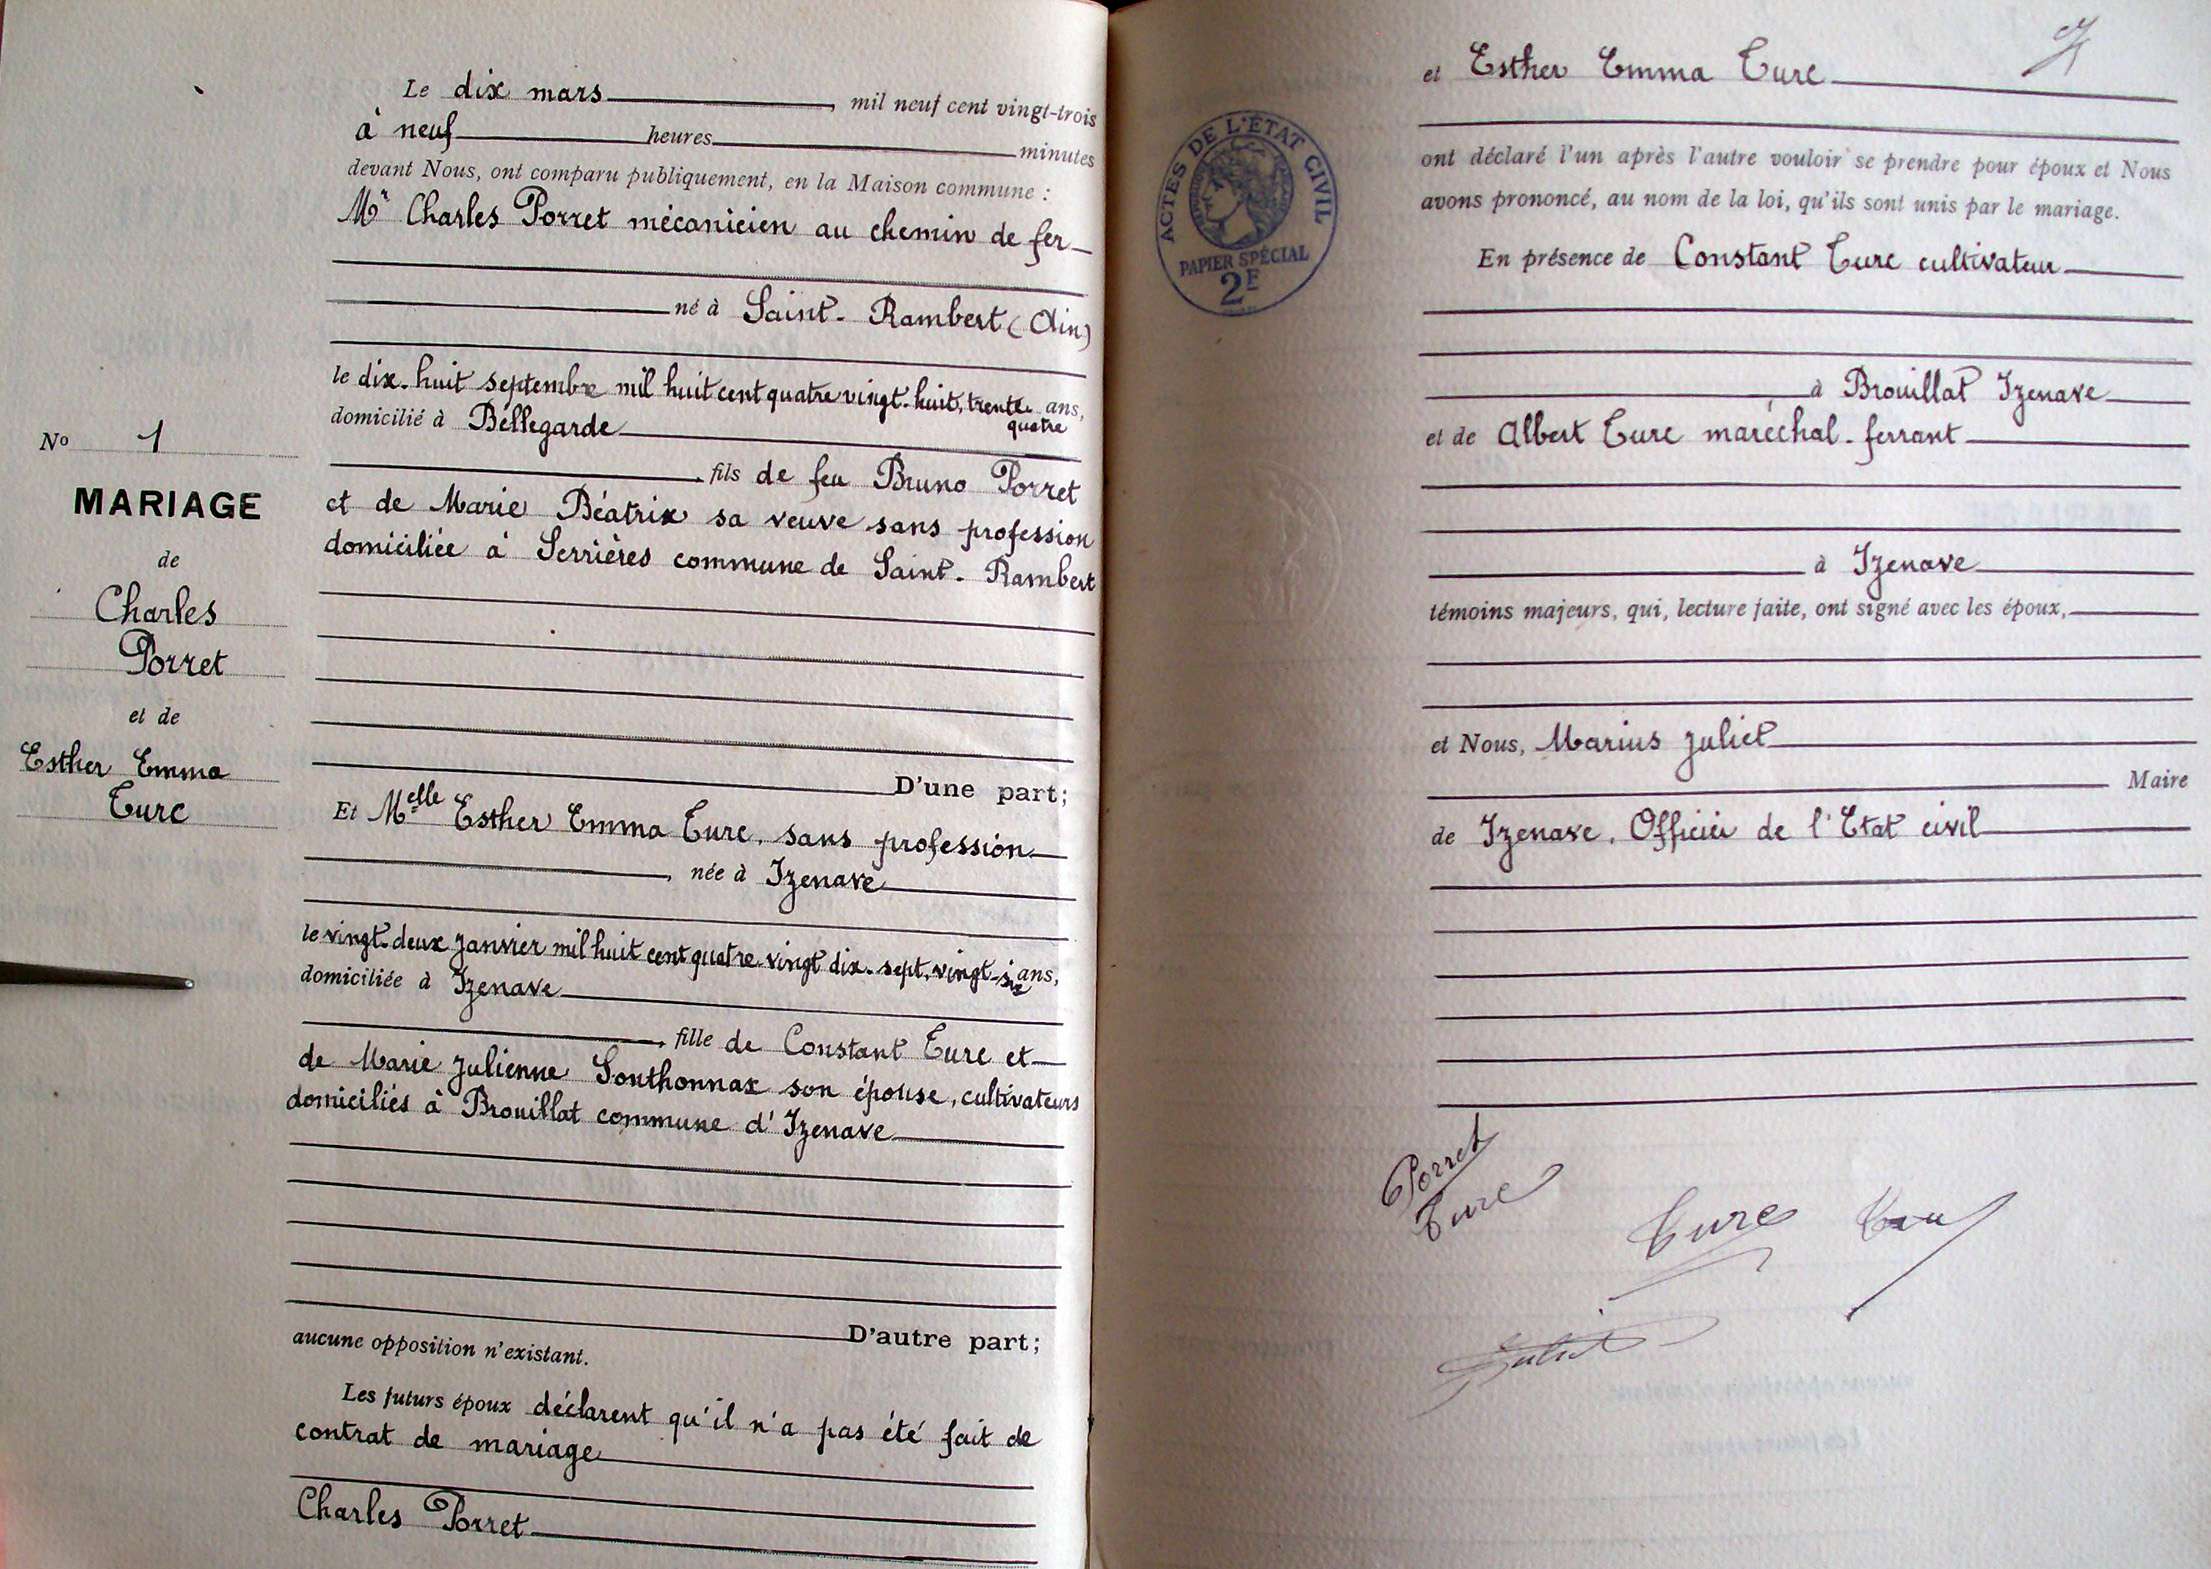 Le dix mars, mil neuf cent vingt-trois
à neuf heures minutes
devant Nous, ont comparu publiquement, en la Maison commune :
Mr Charles Porret mécanicien au chemin de fer
né à Saint-Rambert (Ain)
le dix-huit septembre mil huit cent quatre vingt-huit, trente quatre ans,
domicilié à Bellegarde
fils de feu Bruno Porret
et de Marie Béatrix sa veuve sans profession
domiciliée à Serrières commune de Saint-Rambert
No 1
MARIAGE
de
Charles
Porret
et de
Esther Emma
Turc
D'une part;
Et Melle Esther Emma Turc, sans profession
, née à Izenave
le vingt-deux janvier mil huit cent quatre-vingt dix-sept, vingt-six ans,
domiciliée à Izenave
, fille de Constant Turc et
de Marie Julienne Sonthonnax son épouse, cultivateurs
domiciliés à Brouillat commune d'Izenave
D'autre part;
aucune opposition n'existant.
Les futurs époux déclarent qu'il n'a pas été fait de
contrat de mariage
Charles Porret
et Esther Emma Turc
ACTES DE L'ÉTAT CIVIL
PAPIER SPÉCIAL
2F
ont déclaré l'un après l'autre vouloir se prendre pour époux et Nous
avons prononcé, au nom de la loi, qu'ils sont unis par le mariage.
En présence de Constant Turc cultivateur
à Brouillat Izenave
et de Albert Turc maréchal-ferrant
à Izenave
témoins majeurs, qui, lecture faite, ont signé avec les époux,
et Nous, Marius Juliet
Maire
de Izenave, Officier de l'Etat civil
Porret
Turc
Turc Turc
Juliet